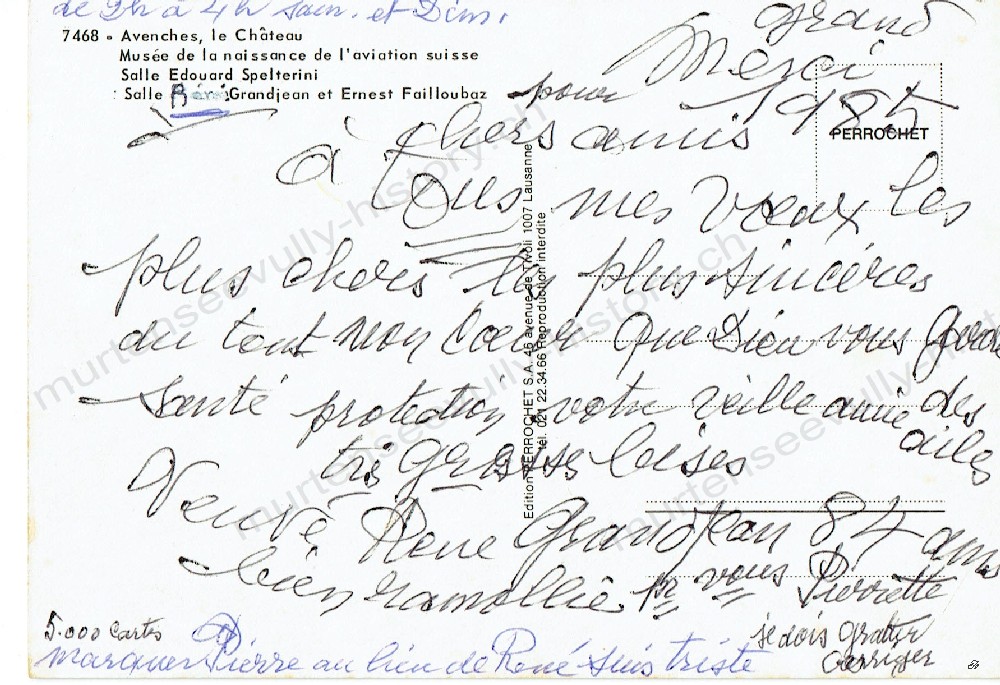 de 2h à 4h Sam. et Dim.
7468 - Avenches, le Château
Musée de la naissance de l'aviation suisse
Salle Edouard Spelterini
Salle René Grandjean et Ernest Failloubaz
Grand
Merci
pour 1985
PERROCHET
à chers amis
Tous mes vœux les
plus chers les plus sincères
du tout mon Cœur que Dieu vous garde
santé protection votre veille amie des
ailes
très grosses bises
Veuve René Grandjean 84 ans
bien ramollie pr vous Pierrette
je dois gratter
corriger
5.000 Cartes
marquer Pierre au lieu de René suis triste
Edition PERROCHET S.A. 46 avenue de Tivoli 1007 Lausanne
tél. 021 22.34.66 Reproduction interdite
murtenseevully-history.ch
murtenseevully-history.ch
murtenseevully-history.ch